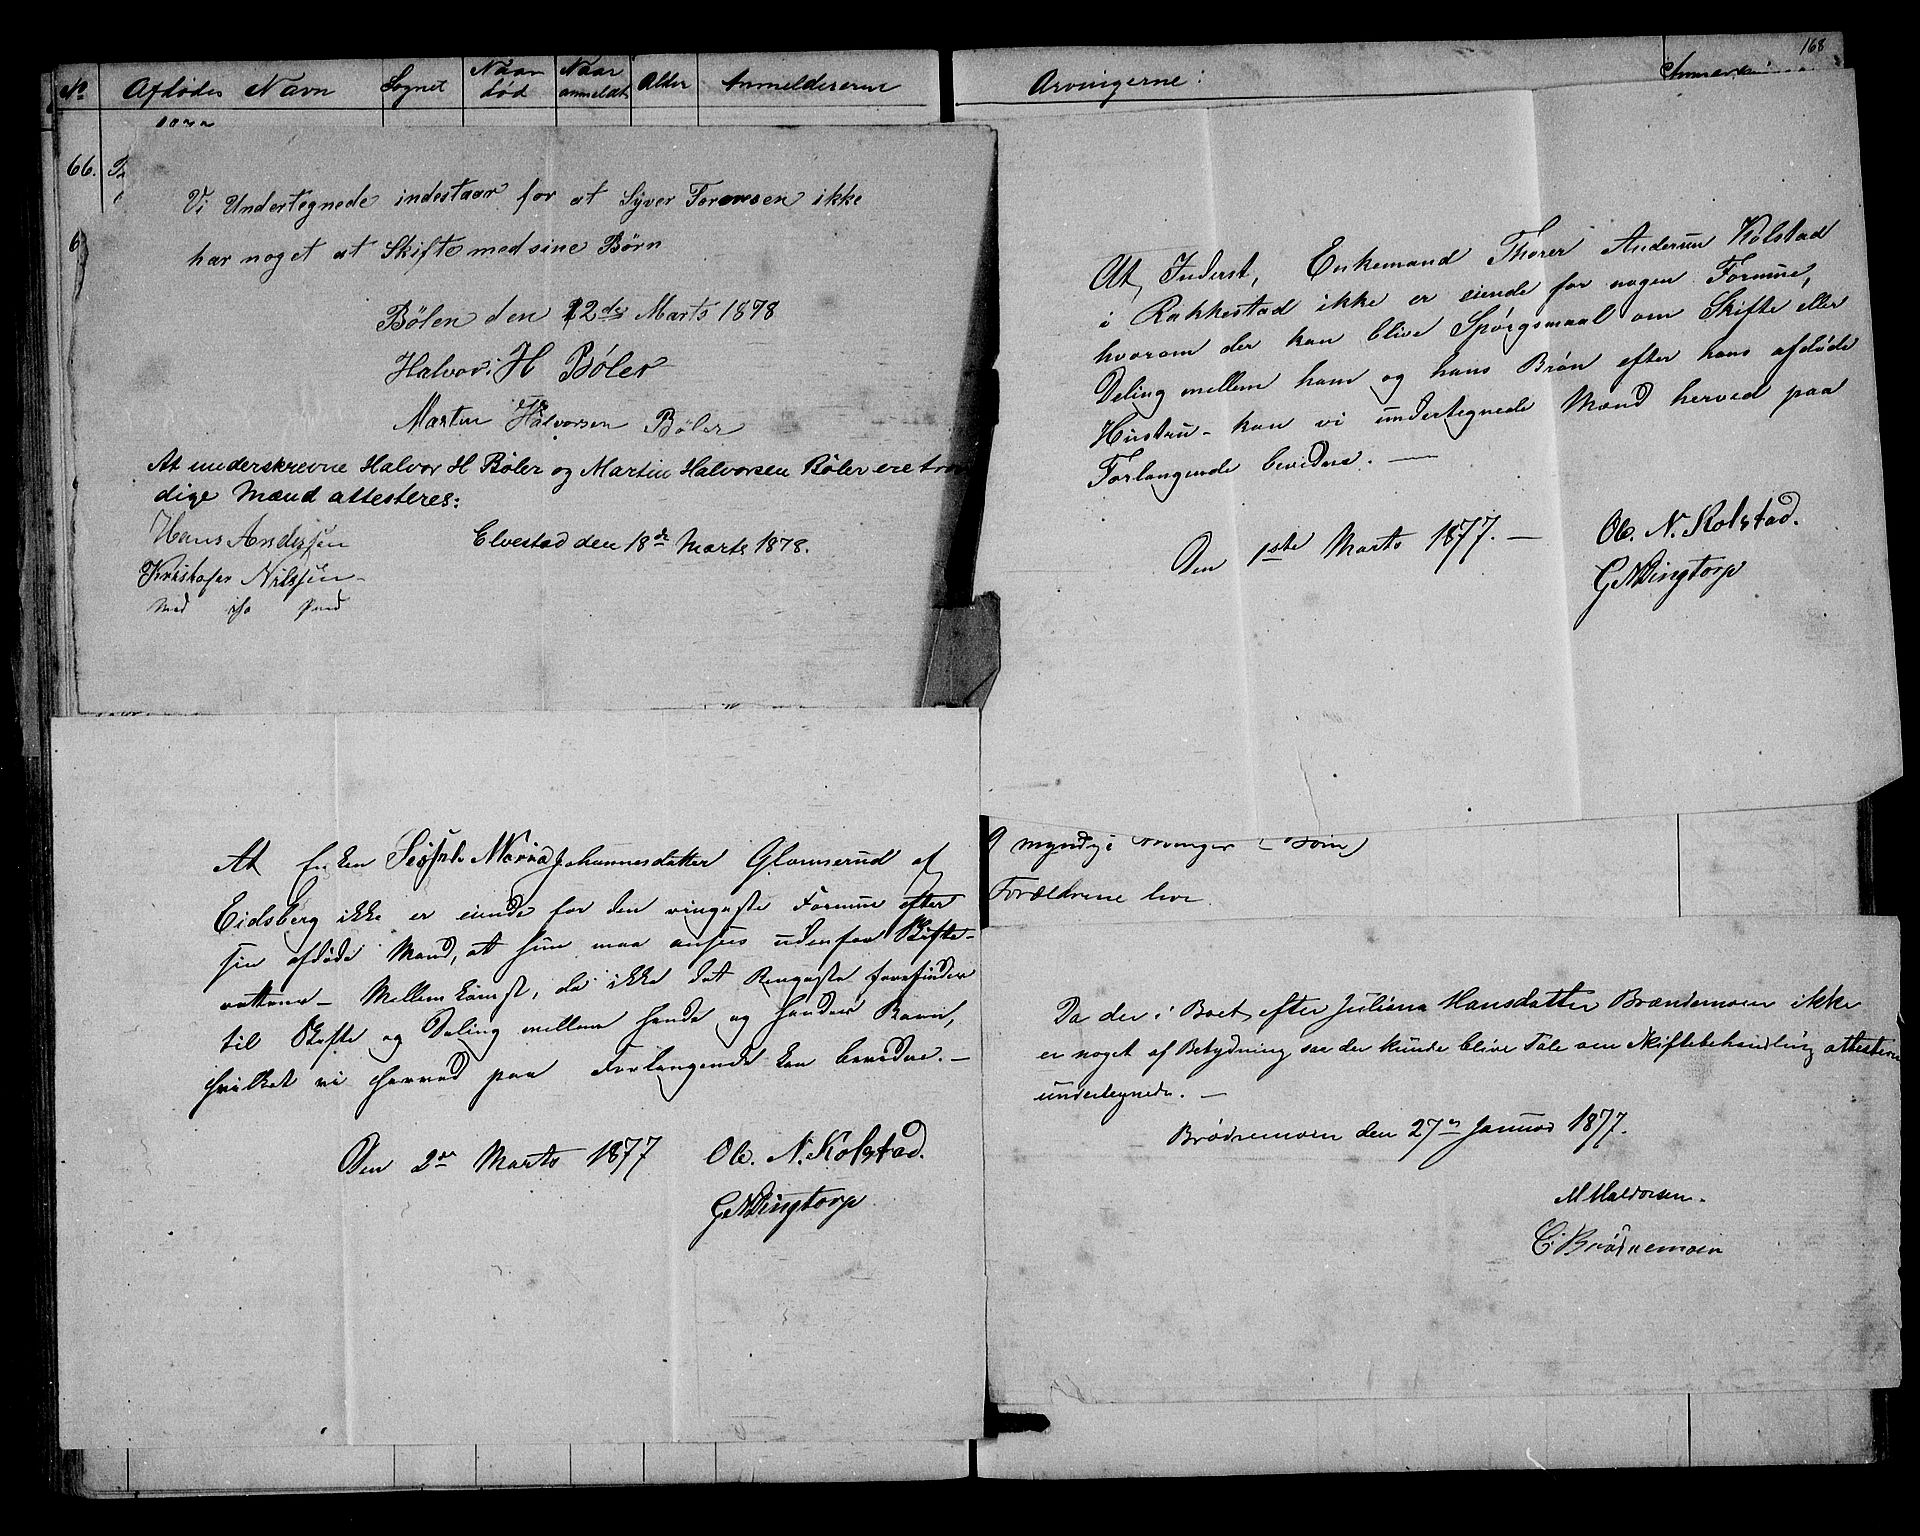 No Afdødes Navn Sognet Naar død Naar anmeldt Alder Anmelderen
Arvingerne:
168
66.
Vi Undertegnede indestaar for at Syver Torensen ikke
har noget at Skifte med sine Børn
Bølen den 12de Marts 1878
Halvor H Bøler
Martin Halvorsen Bøler
At underskrevne Halvor H Bøler og Martin Halvorsen Bøler ere tro
dige Mænd attesteres:
Hans Anderssen
Elvestad den 18de Marts 1878.
Kristofer Nilssen
med paa Pend
At Inderst, Enkemand Thorer Andersen Kolstad
i Rakkestad ikke er eiende for nogen Formue,
hvorom der kan blive Spørgsmaal om Skifte eller
Deling mellem ham og hans Brøn efter hans afdøde
Hustru - kan vi undertegnede Mænd herved paa
Forlangende bevidne. —
Den 1ste Marts 1877. —
Ole N. Kolstad.
G Dingtorp
At Enken Maria Johannesdatter Glomserud af
Eidsberg ikke er eiende for den ringeste Formue efter
sin afdøde Mand, at hun maa ansees udenfor Skifte-
rettens - Mellemkomst, da ikke det Ringeste forefindes
til Skifte og Deling mellem hende og hendes Barn,
hvilket vi herved paa Forlangende kan bevidne. —
Den 2den Marts 1877
Ole N. Kolstad.
G Dingtorp
9 myndige Arvinger (Børn)
Forældrene leve.
Da der i Boet efter Juliana Hansdatter Brændemoen ikke
er noget af Betydning saa der kunde blive Tale om Skiftebehandling attesteres
undertegnede. —
Brødremoen den 27de Januar 1877.
M Halvorsen.
C. Brødremoen